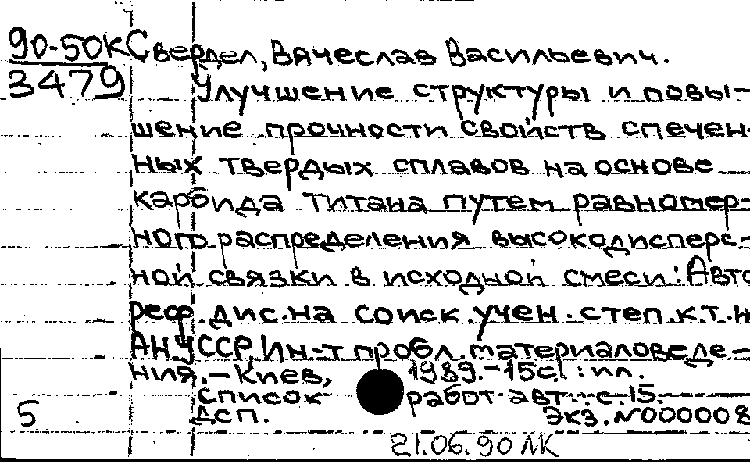 90-50К Свердел, Вячеслав Васильевич.
3479 Улучшение структуры и повы-
шение прочности свойств спечен-
ных твердых сплавов на основе
карбида титана путем равномер-
ного распределения высокодисперс-
ной связки в исходной смеси: Авто
реф. дис. на соиск. учен. степ. к.т.н
АН УССР, Ин-т пробл. материаловеде-
ния. - Киев, 1989. - 15 с. : ил.
Список работ авт.: с. 15.
5 ДСП. Экз. N000008
21.06.90 ЛК